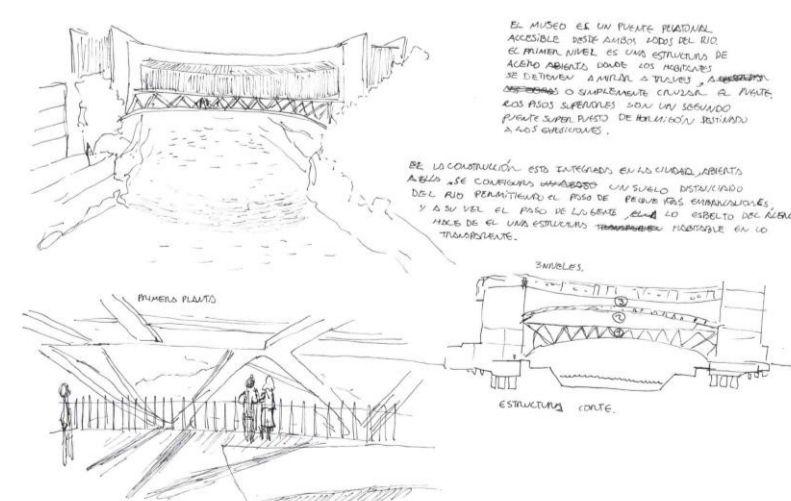 EL MUSEO ES UN PUENTE PEATONAL
ACCESIBLE DESDE AMBOS LADOS DEL RIO.
EL PRIMER NIVEL ES UNA ESTRUCTURA DE
ACERO ABIERTA DONDE LOS HABITANTES
SE DETIENEN A MIRAR A TRAVES, A
O SIMPLEMENTE CRUZAR EL PUENTE.
LOS PISOS SUPERIORES SON UN SEGUNDO
PUENTE SUPER PUESTO DE HORMIGÓN DESTINADO
A LAS EXPOSICIONES.
LA CONSTRUCCIÓN ESTA INTEGRADA EN LA CIUDAD, ABIERTA
A ELLA, SE CONFIGURA UN SUELO DISTANCIADO
DEL RIO PERMITIENDO EL PASO DE PEQUEÑAS EMBARCACIONES,
Y A SU VEZ EL PASO DE LA GENTE, LO ESBELTO DEL ACERO
HACE DE EL UNA ESTRUCTURA HABITABLE EN LO
TRANSPARENTE.
3 NIVELES.
PRIMERA PLANTA
3
2
1
ESTRUCTURA CORTE.